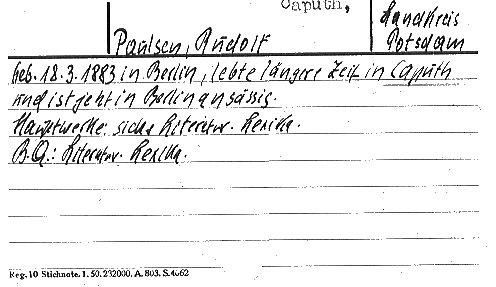 Caputh,
Landkreis
Potsdam
Paulsen, Rudolf
geb. 18.3.1883 in Berlin, lebte längere Zeit in Caputh
und ist jetzt in Berlin ansässig.
Hauptwerke: siehe Literatur. Lexika.
B.Q.: Literatur. Lexika.
Reg. 10 Stichnote. 1. 50. 232000. A. 803. S. 4662